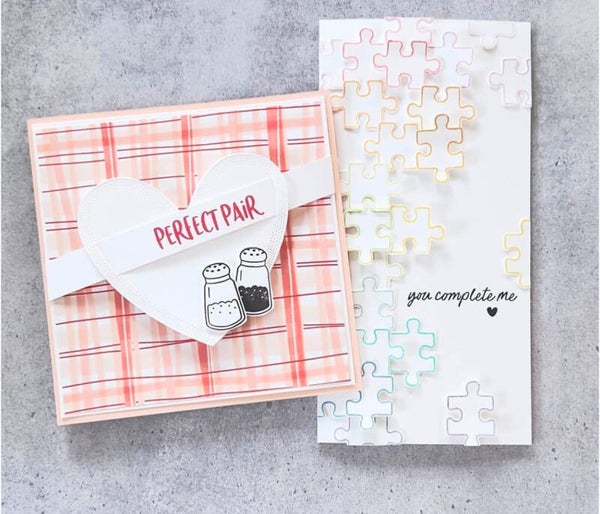 PERFECT PAIR
you complete me